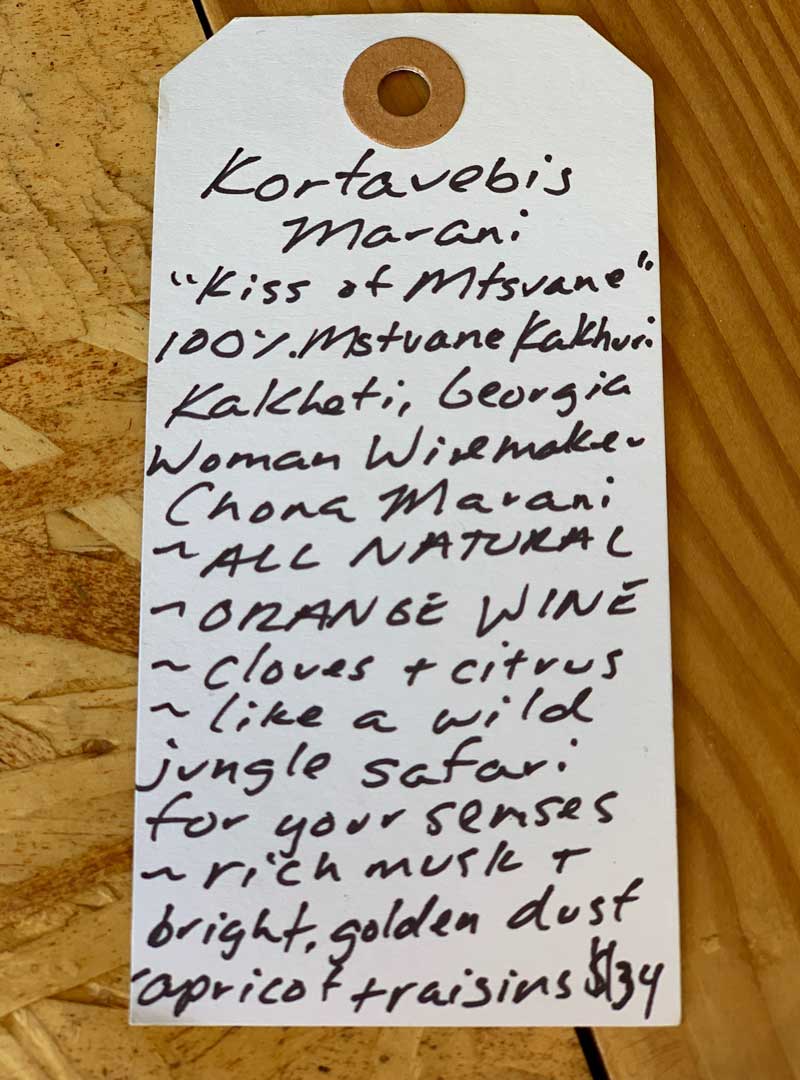 Kortavebis
Marani
"Kiss of Mtsvane"
100% Mstvane Kakhuri
Kakheti, Georgia
Woman Winemaker
Chona Marani
~ ALL NATURAL
~ ORANGE WINE
~ cloves + citrus
~ like a wild
jungle safari
for your senses
~ rich musk +
bright, golden dust
apricot + raisins $34